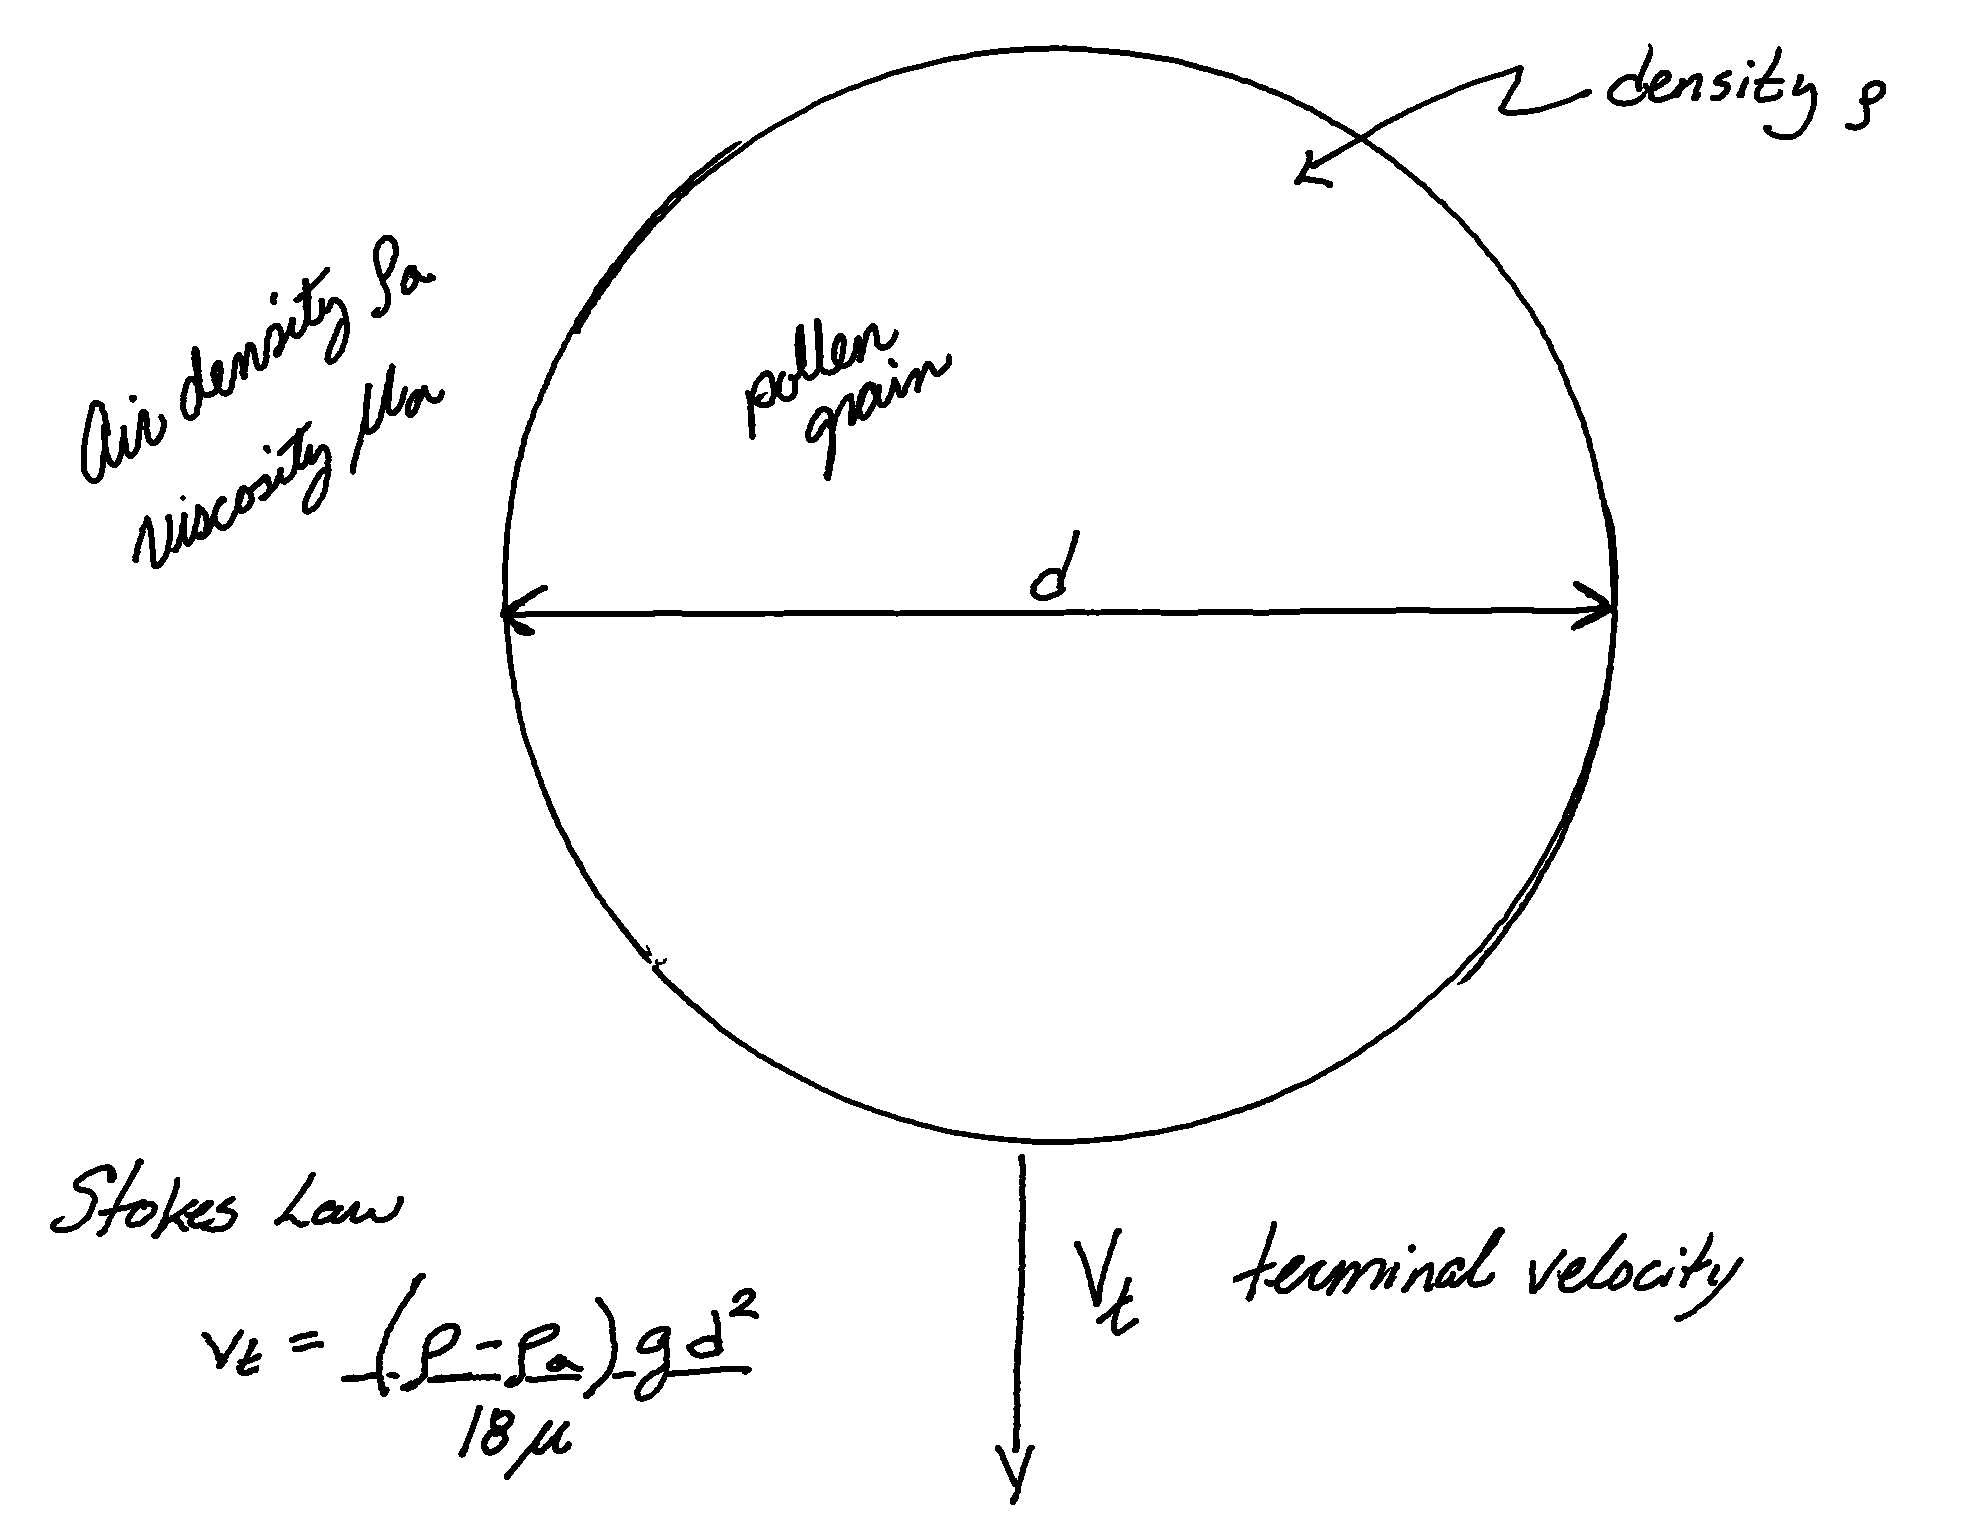 density ρ
Air density ρa
viscosity μa
pollen
grain
d
Stokes Law
vt = (ρ-ρa) g d²
18 μ
Vt terminal velocity